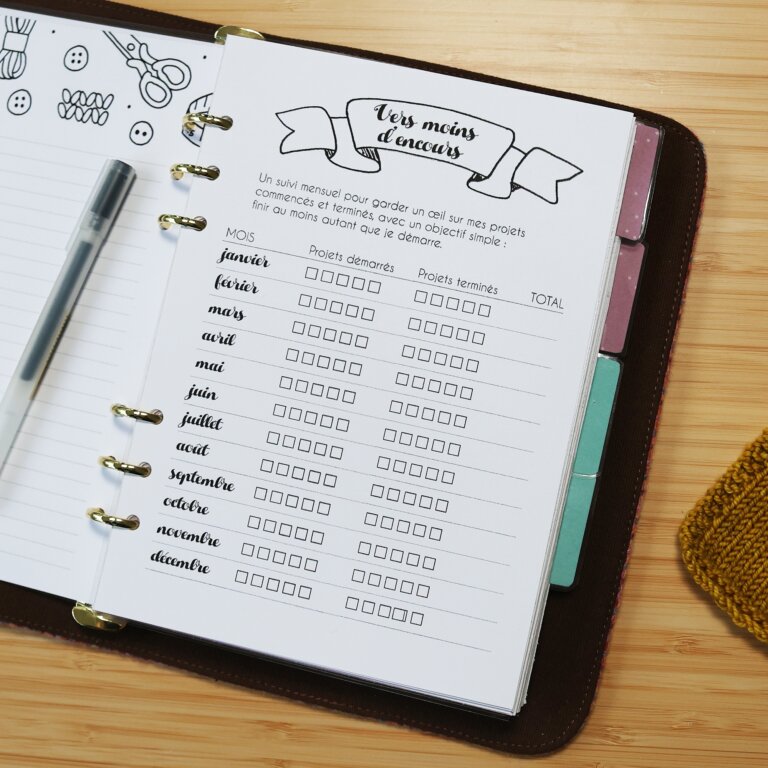 Vers moins
d'encours
Un suivi mensuel pour garder un œil sur mes projets
commencés et terminés, avec un objectif simple :
finir au moins autant que je démarre.
MOIS Projets démarrés Projets terminés TOTAL
janvier
février
mars
avril
mai
juin
juillet
août
septembre
octobre
novembre
décembre